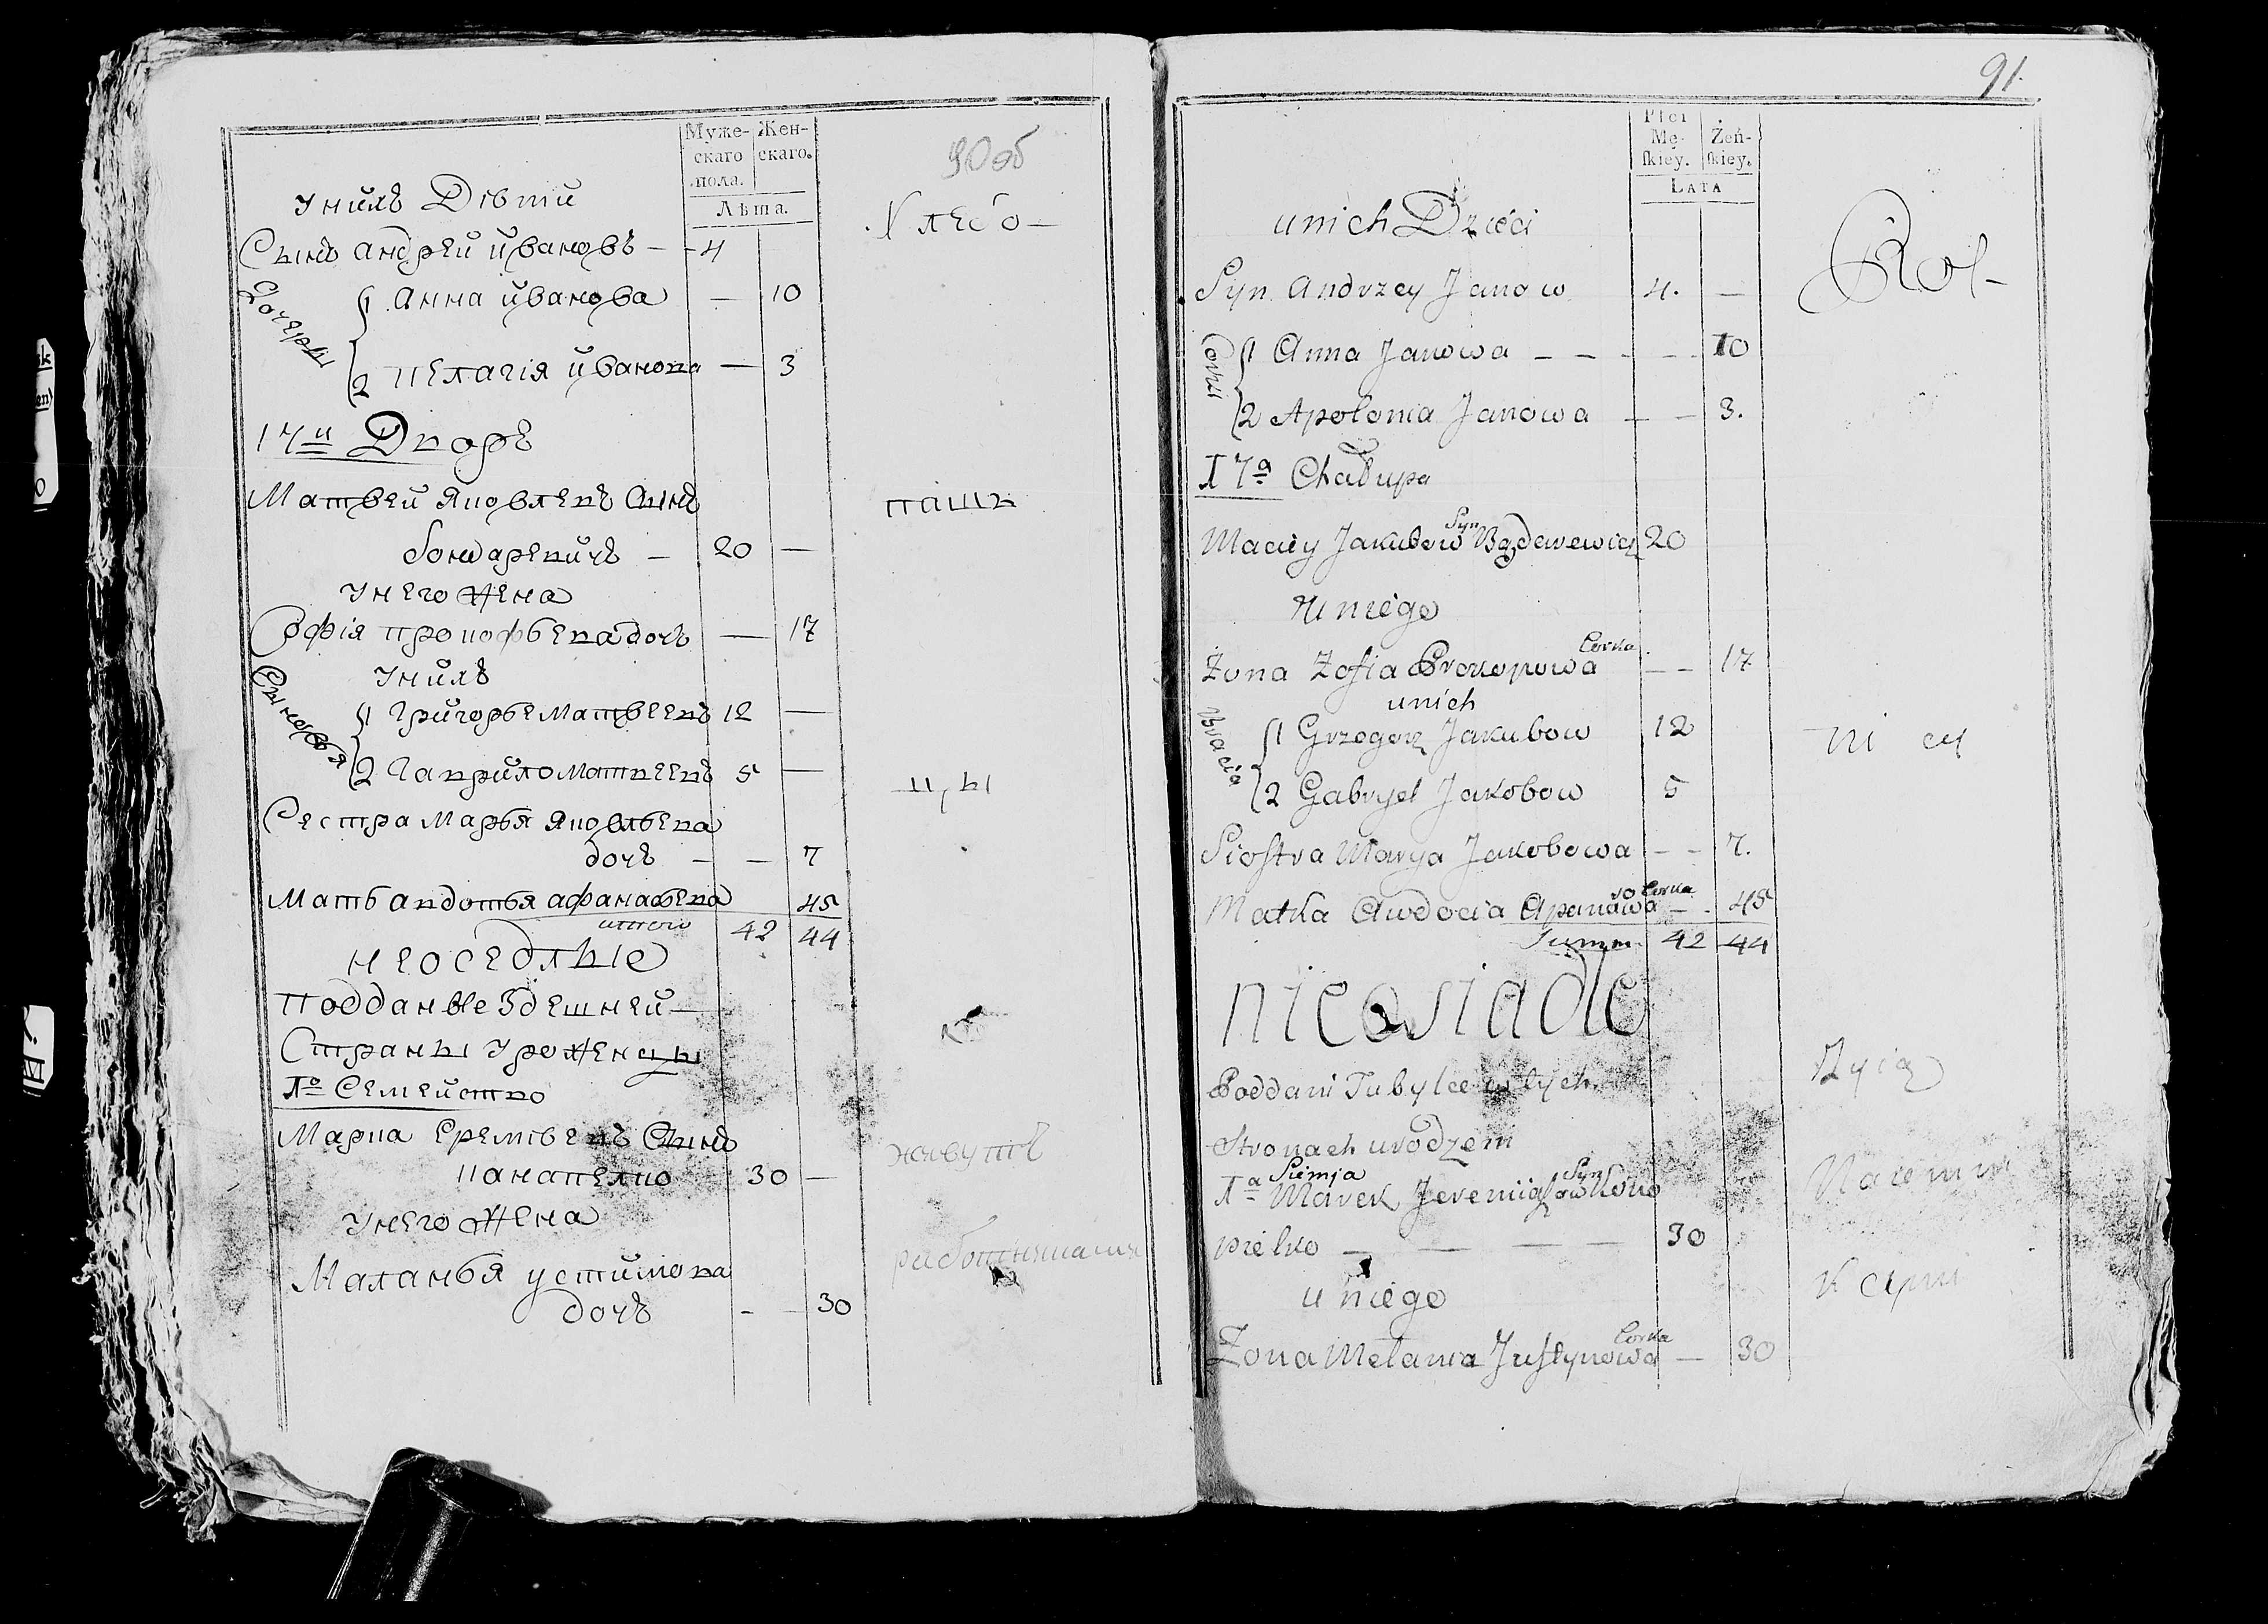 90 об
Муже-
скаго
пола.
Жен-
скаго.
Лѣта.
У нихъ Дѣти
Хлебо-
Сынъ Андрей Ивановъ — 4
Дочери
1 Анна Иванова — 10
2 Пелагія Иванова — 3
17й Дворъ
Матвей Яковлевъ Сынъ
паш
Бондаревичъ — 20 —
У него Жена
Софія Прокофьева дочь — 17
У нихъ
Сыновья
1 Григорье Матвеевъ 12 —
2 Гаврило Матвеевъ 5 —
цы
Сестра Марья Яковлева
дочь — — 7
Мать Авдотья Афанасьева 45
итого 42 44
Неоседлые
Подданые Здешней
Страны Уроженцы
1о Семейство
Марка Еремѣевъ Сынъ
живутъ
Канапелко 30 —
У него Жена
Маланья Устимова
дочь — — 30
91.
Płci
Mę-
ſkiey.
Żeń-
ſkiey.
LATA
u nich Dzieci
Rol-
Syn Andrzey Janow 4. —
Corki
1 Anna Janowa — — — — 10
2 Apolonia Janowa — — 3.
17a Chałupa
Maciey Jakubow Syn Bądarewicz 20
u niego
Żona Zofia Prokopowa Corka — — 17
u nich
Bracia
1 Grzegorz Jakubow 12
ni cy
2 Gabryel Jakobow 5
Siostra Marya Jakobowa — — 7.
Matka Awdocia Apanasowa Corka — 45
Summ 42 44
nieosiadłe
Poddani Tubylce w tych
Żyią
Stronach urodzeni
1a Siemja Marek Jeremiaszow Syn Kono
pielko — — — — 30
u niego
Żona Melania Justynowa Corka — 30